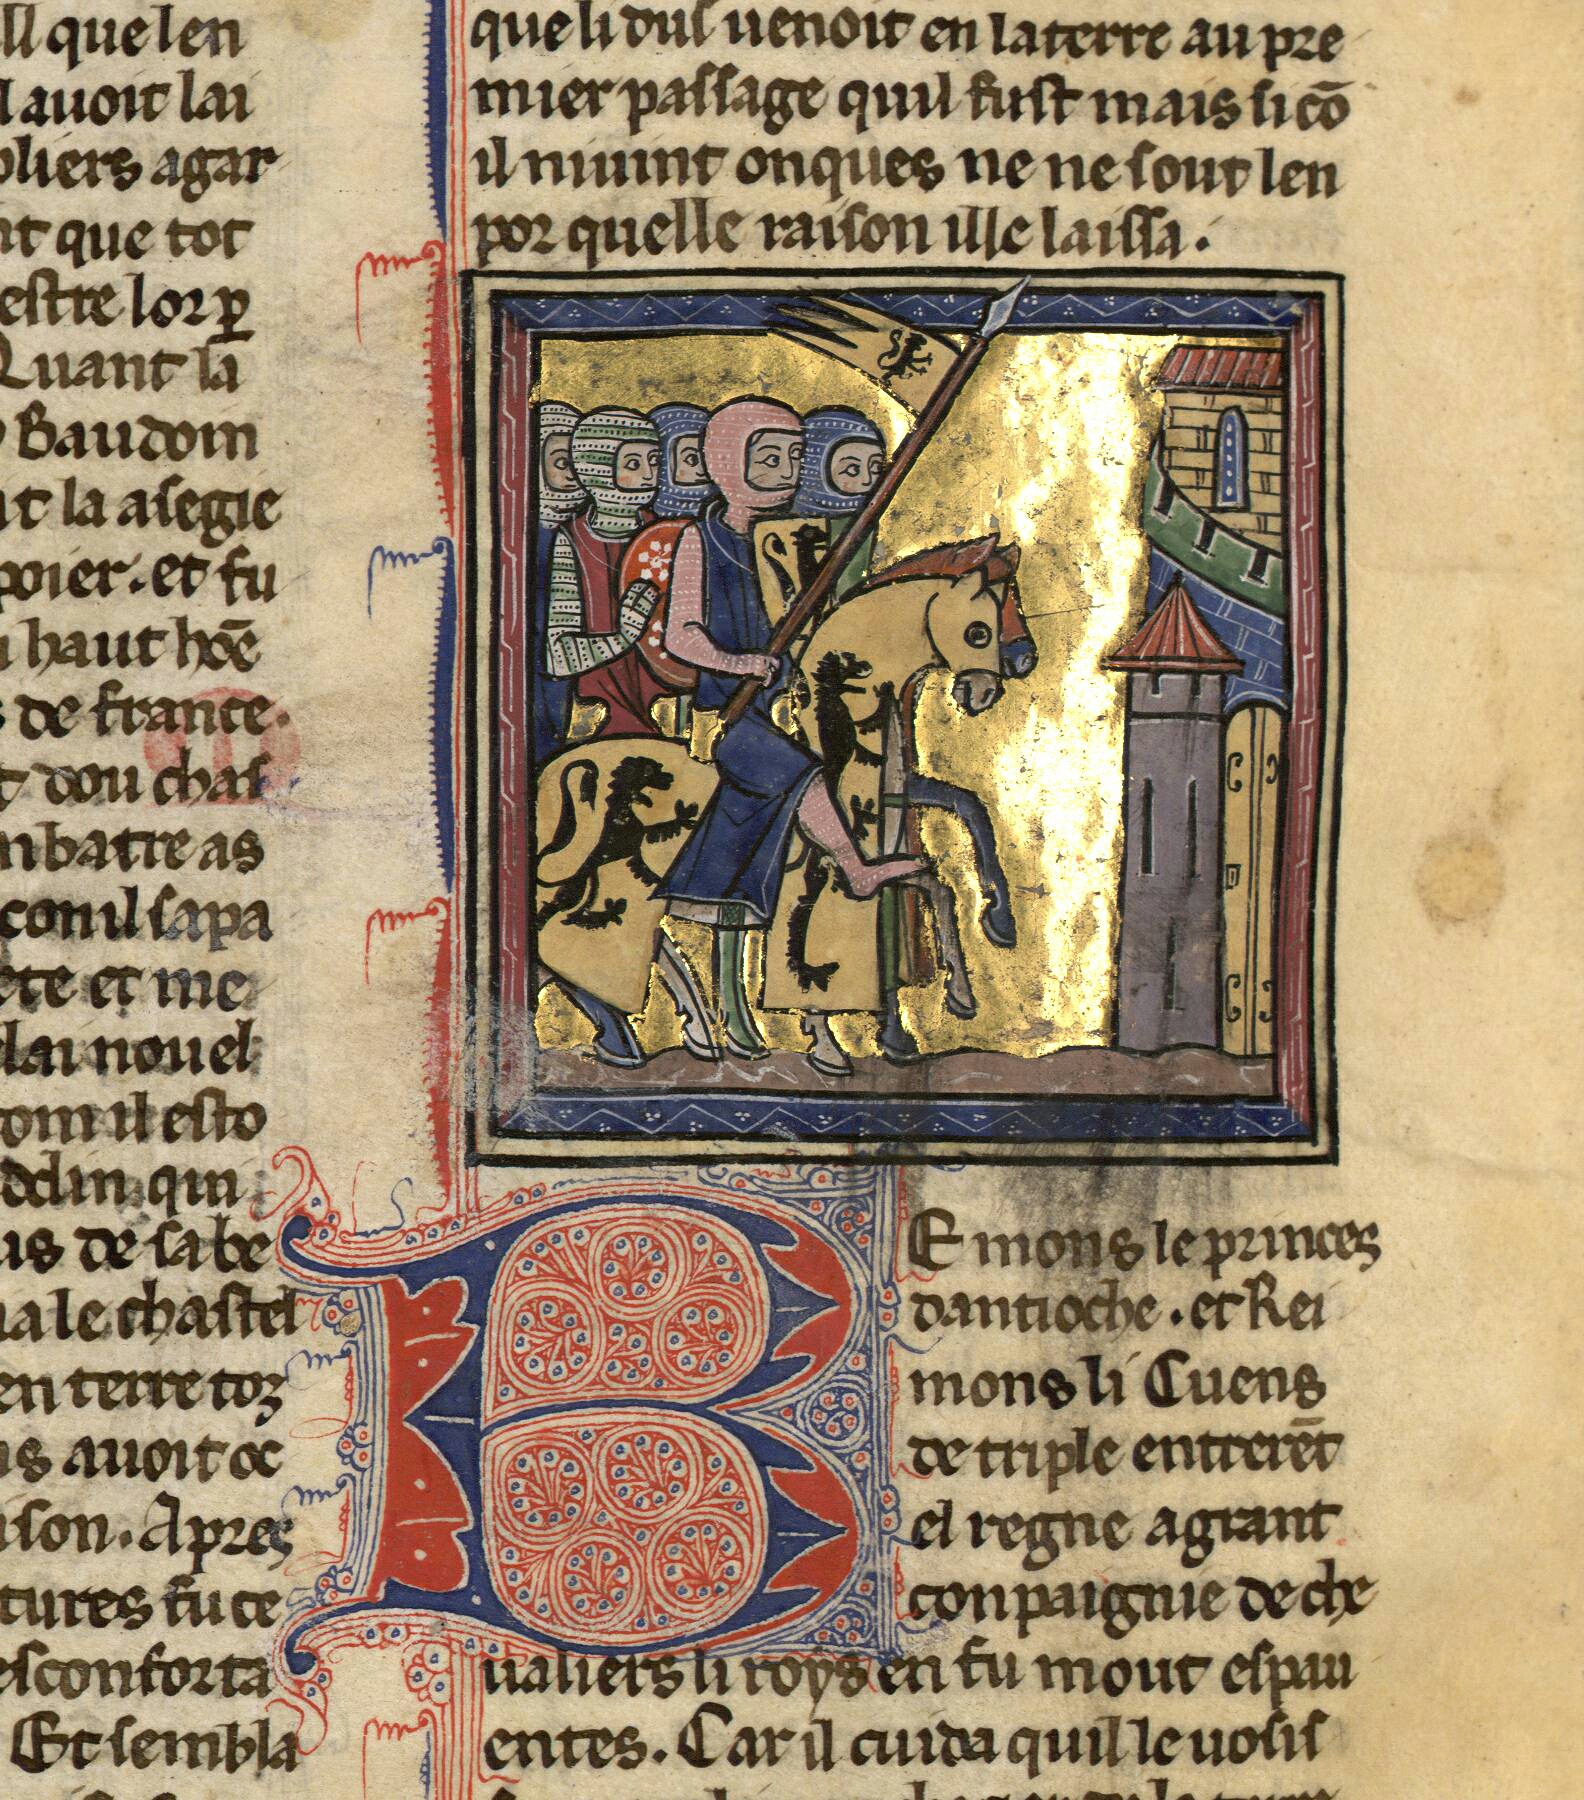 ll que len
l auoit lai
pliers agar
nt que tot
estre lor ꝑ
Quant la
Baudoin
nt la asegie
poier. et fu
haut hōe
s de france.
t dou chas
nbatre as
con il sapa
ete et me
delai nouel
com il esto
qui
us de sabe
ua le chastel
en terre toz
is auoit oc
ison. Apres
tures fu ce
esconforta
Et sembla
que li dus uenoit en la terre au pre
mier passage quil fust mais si cō
il ni uint onques ne ne sout len
por quelle raison il le laissa.
B
E mons le princes
dantioche. et Rei
mons li Cuens
de triple entrerēt
el regne a grant
conpaignie de che
ualiers li roys en fu mout espau
entes. Car il cuida quil le uosis